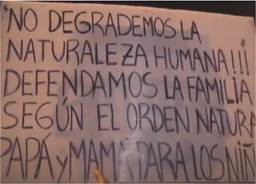 NO DEGRADEMOS LA
NATURALEZA HUMANA!!!
DEFENDAMOS LA FAMILIA
SEGÚN EL ORDEN NATURA
PAPÁ y MAMÁ PARA LOS NIÑ